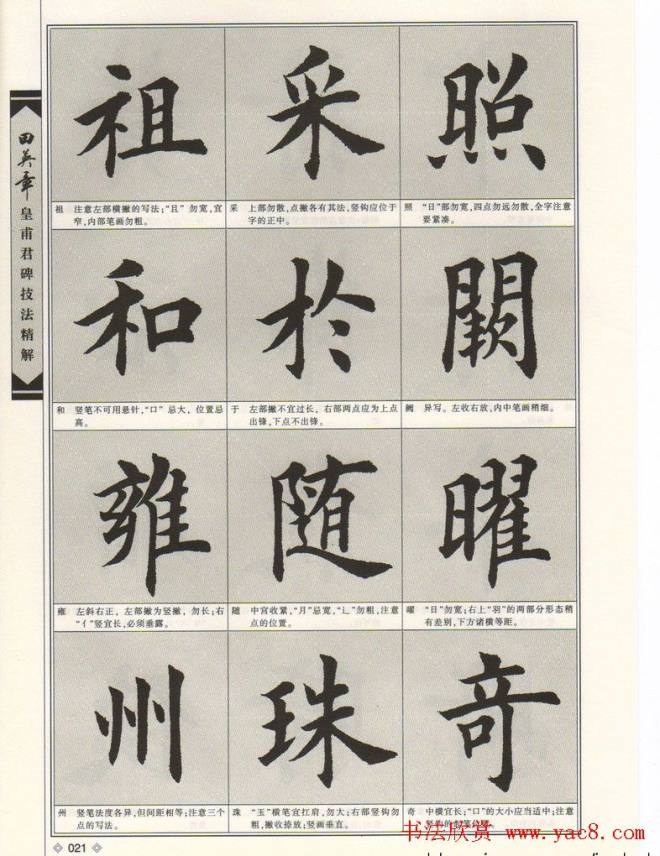 田英章
皇甫君碑技法精解
祖 采 照
祖 注意左部横撇的写法；“且”勿宽，宜
窄，内部笔画勿粗。
采 上部勿散，点撇各有其法，竖钩应位于
字的正中。
照 “日”部勿宽，四点勿远勿散，全字注意
要紧凑。
和 於 闕
和 竖笔不可用悬针，“口”忌大，位置忌
高。
于 左部撇不宜过长，右部两点应为上点
出锋，下点不出锋。
阙 异写。左收右放，内中笔画稍细。
雍 随 曜
雍 左斜右正，左部撇为竖撇，勿长；右
“亻”竖宜长，必须垂露。
随 中宫收紧，“月”忌宽，“辶”勿粗，注意
点的位置。
曜 “日”勿宽；右上“羽”的两部分形态稍
有差别，下方诸横等距。
州 珠 奇
州 竖笔法度各异，但间距相等；注意三个
点的写法。
珠 “玉”横笔宜扛肩，勿大；右部竖钩勿
粗，撇收捺放；竖画垂直。
奇 中横宜长；“口”的大小应当适中；注意
021
书法欣赏 www.yac8.com